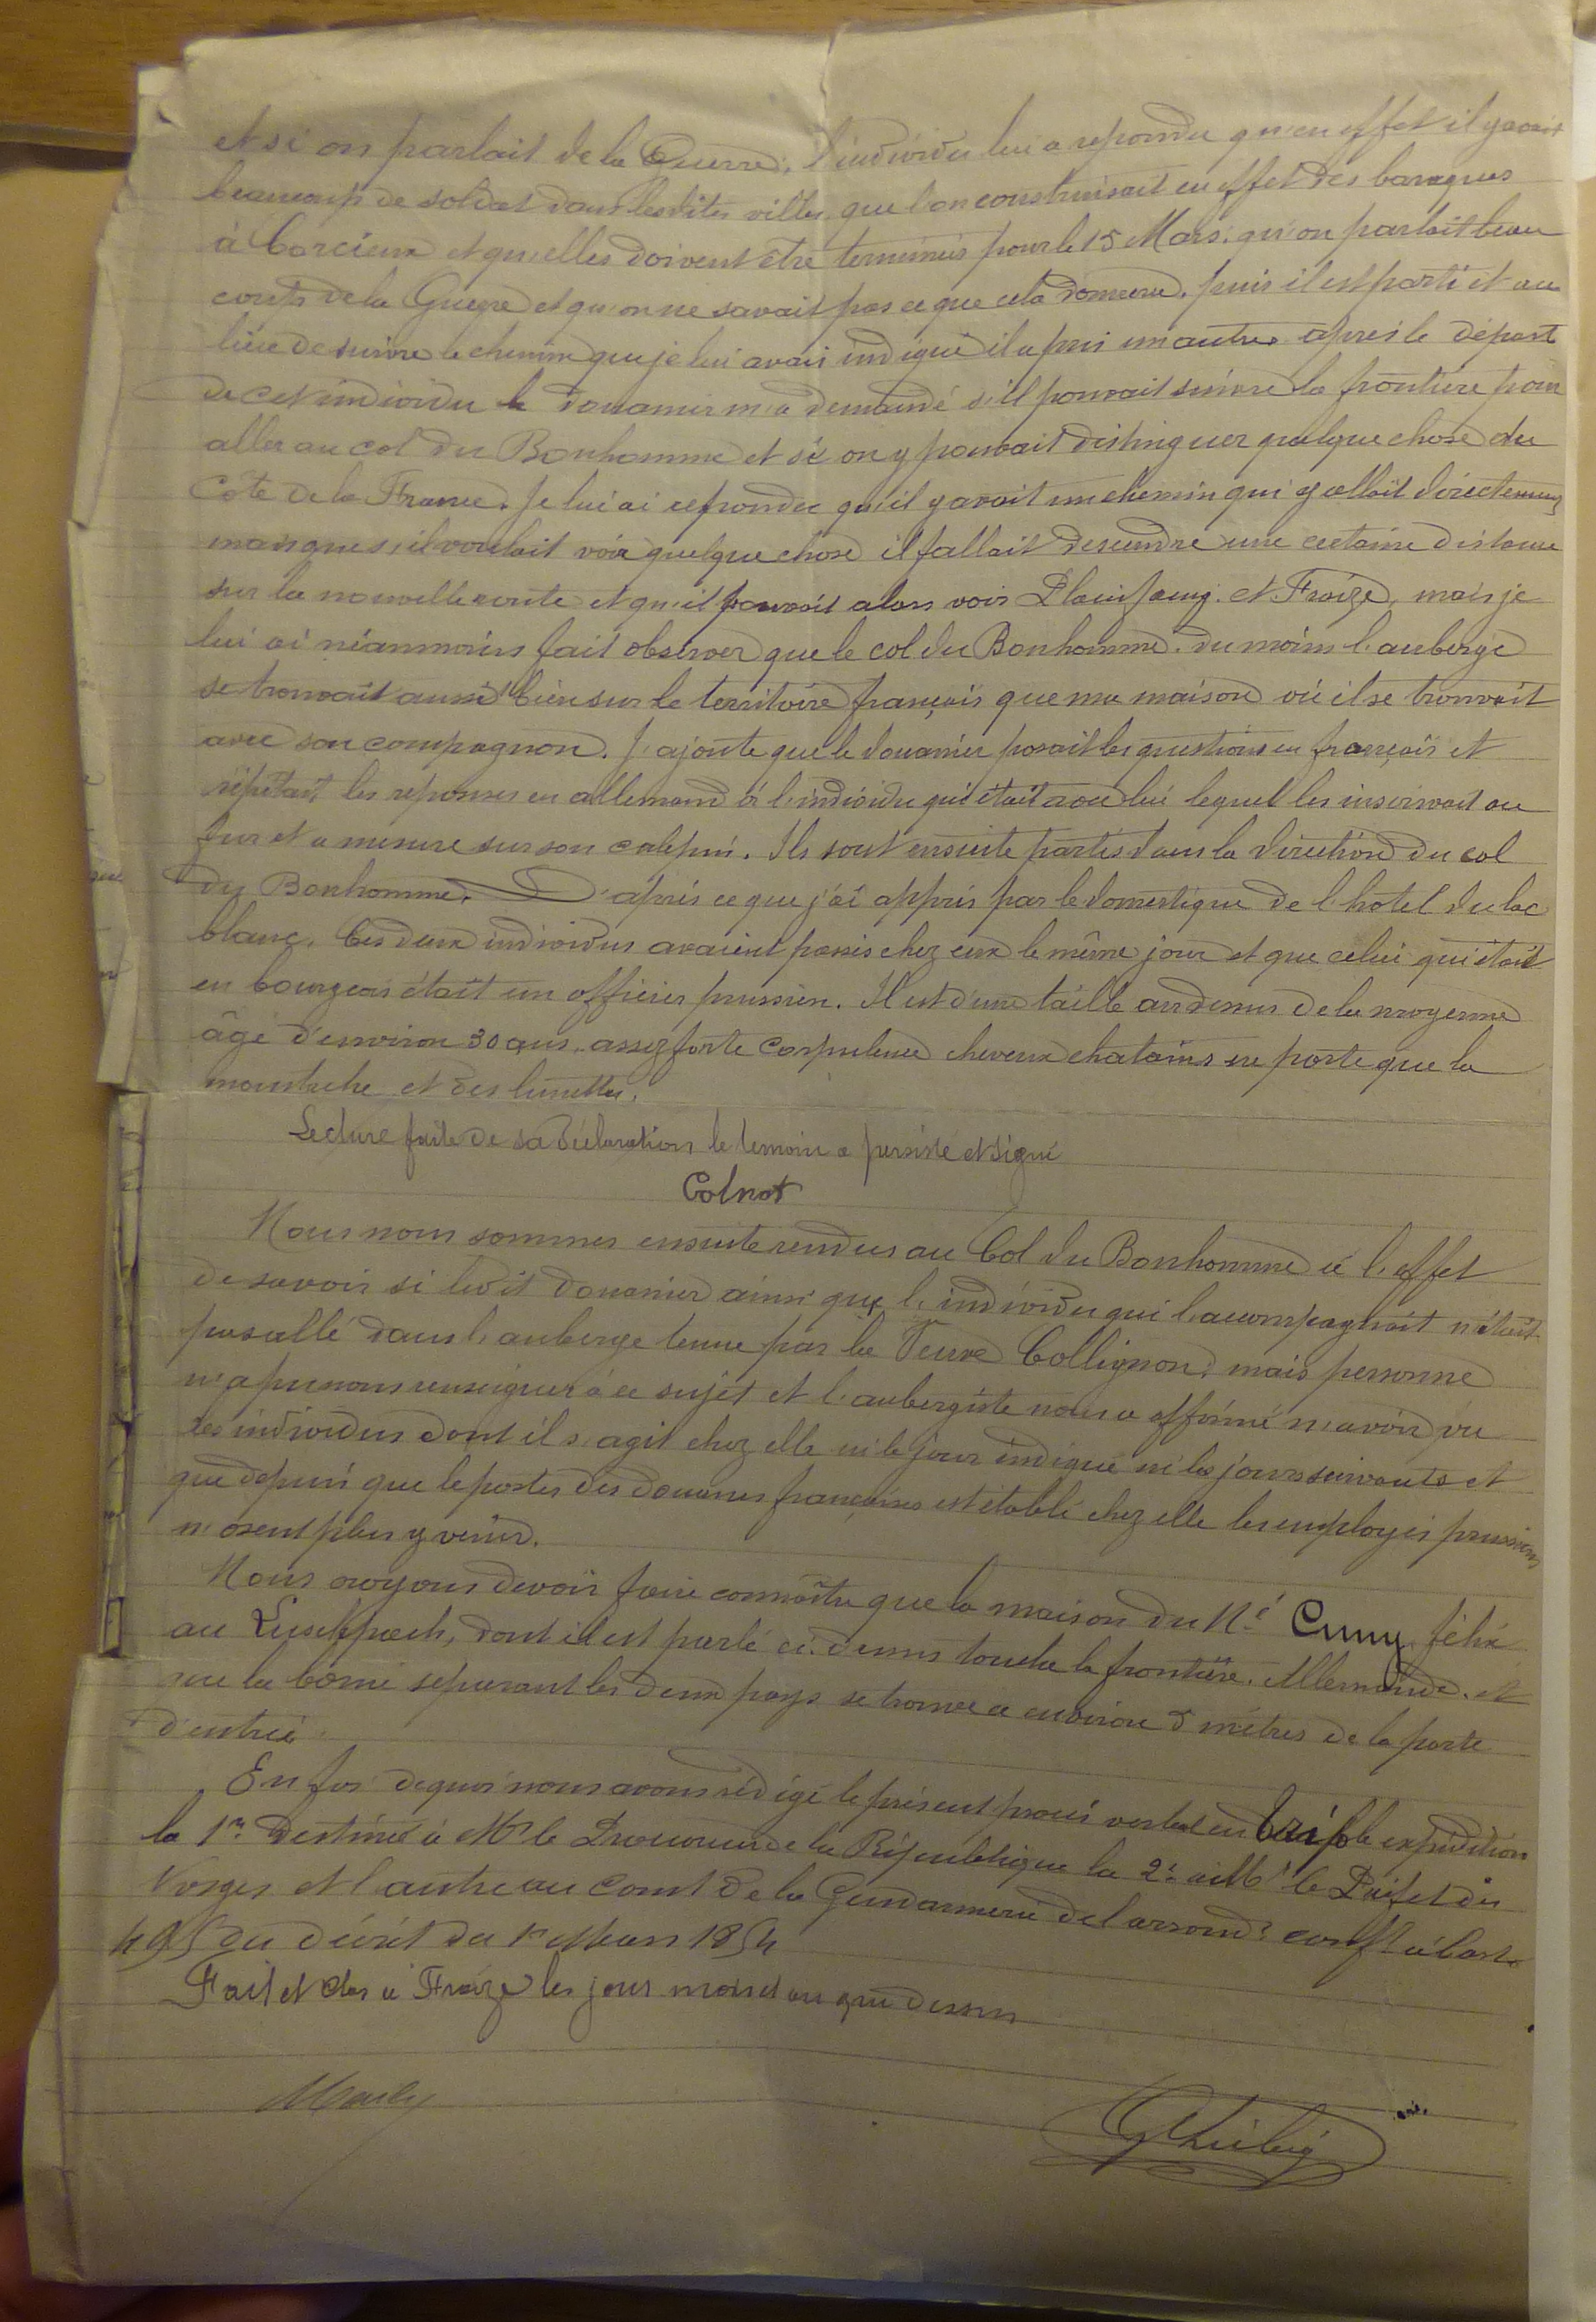 et si on parlait de la Guerre, l'individu lui a repondu qu'en effet il y avait
beaucoup de soldat dans lesdites villes, que l'on construisait en effet des baraques
à Corcieux et qu'elles doivent être terminées pour le 15 Mars, qu'on parlait beau
coup de la Guerre et qu'on ne savait pas ce que cela donnera, puis il est parti et au
lieu de suivre le chemin que je lui avais indiqué il a pris un autre après le départ
de cet individu le douanier m'a demandé s'il pouvait suivre la frontière pour
aller au col du Bonhomme et si on y pouvait distinguer quelque chose du
Côté de la France. Je lui ai repondu qu'il y avait un chemin qui y allait directement
mais que s'il voulait voir quelque chose il fallait descendre une certaine distance
sur la nouvelle route et qu'il pouvait alors voir Plainfaing et Fraize, mais je
lui ai néanmoins fait observer que le col du Bonhomme, du moins l'auberge
se trouvait aussi bien sur le territoire français que ma maison où il se trouvait
avec son compagnon. J'ajoute que le douanier posait les questions en français et
répétait les reponses en allemand à l'individu qui était avec lui lequel les inscrivait au
fur et a mesure sur son calepin. Ils sont ensuite partis dans la direction du col
du Bonhomme. D'après ce que j'ai appris par le domestique de l'hotel du lac
blanc, Ces deux individus avaient passés chez eux le même jour et que celui qui était
en bourgeois était un officier prussien. Il est d'une taille au dessus de la moyenne
âgé d'environ 30 ans, assez forte corpulence cheveux chatains ne porte que la
moustache et des lunettes.
Lecture faite de sa déclaration le temoin a persisté et signé
Colnot
Nous nous sommes ensuite rendus au Col du Bonhomme à l'effet
de savoir si ledit douanier ainsi que l'individu qui l'accompagnait n'était
pas allé dans l'auberge tenue par la Veuve Collignon, mais personne
n'a pu nous renseigner à ce sujet et l'aubergiste nous a affirmé n'avoir vu
les individus dont il s'agit chez elle ni le jour indiqué ni les jours suivants et
que depuis que le postes des douanes françaises est établi chez elle les employés prussiens
n'osent plus y venir.
Nous croyons devoir faire connaître que la maison du Né Cuny félix
au Luschpach, dont il est parlé ci-dessus touche la frontière Allemande, et
que la borne separant les deux pays se trouve a environ 5 mètres de la porte
d'entrée.
En foi de quoi nous avons rédigé le présent procès verbal en triple expédition
la 1re destinée à Mr le Procureur de la République la 2e à Mr le Préfet des
Vosges et l'autre au Comt de la Gendarmerie de l'arrond t conft à l'art.
495 du décret du 1er Mars 1854
Fait et clos à Fraize les jour mois et an que dessus